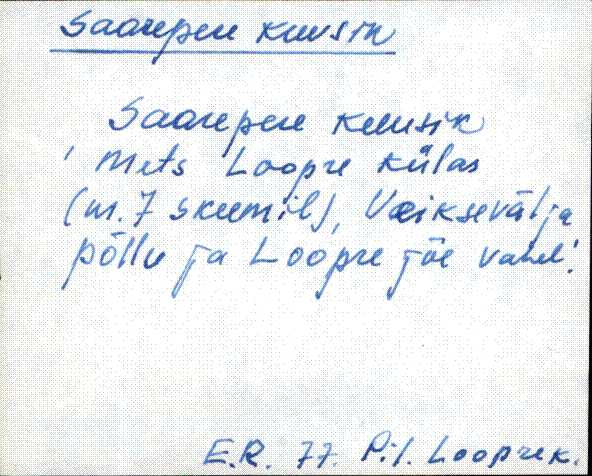 Saarepere kuusik
Saarepere kuusik
' Mets Loopre külas
(nr. 7 skeemil), Väiksevälja
põllu ja Loopre jõe vahel.'
E.R. 77. P.-J. Loopre k.